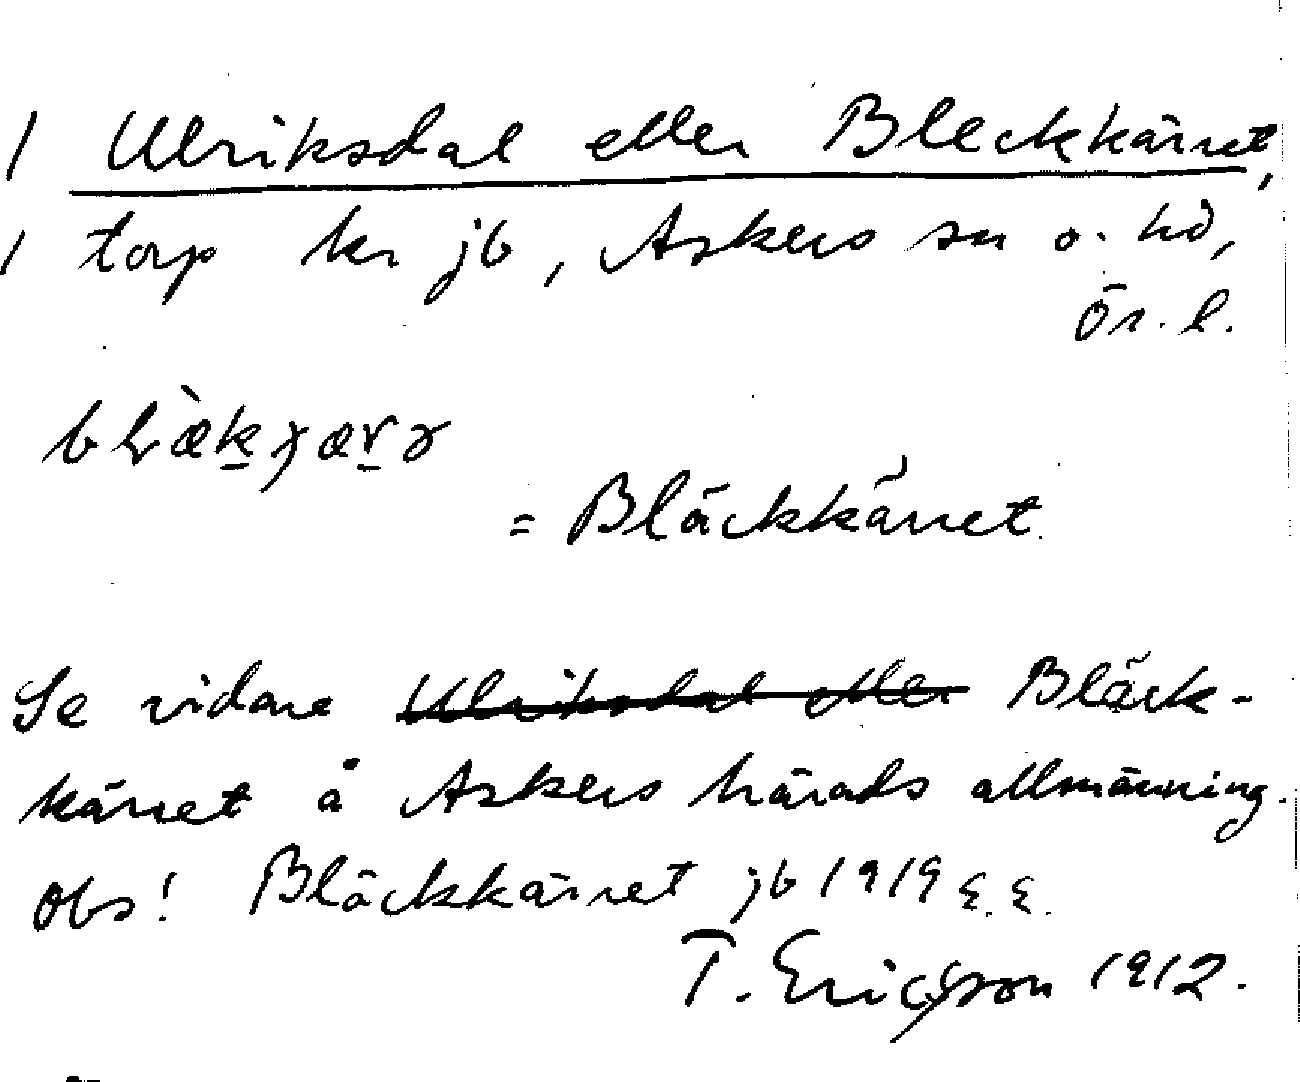 Ulriksdal eller Bleckkärret,
torp kr jb, Askers sn o. hd,
Ör. l.
= Bläckkärret
Se vidare ~~Ulriksdal eller~~ Bläck-
kärret å Askers härads allmänning.
Obs! Bläckkärret jb 1919 E. E.
T. Ericsson 1912.